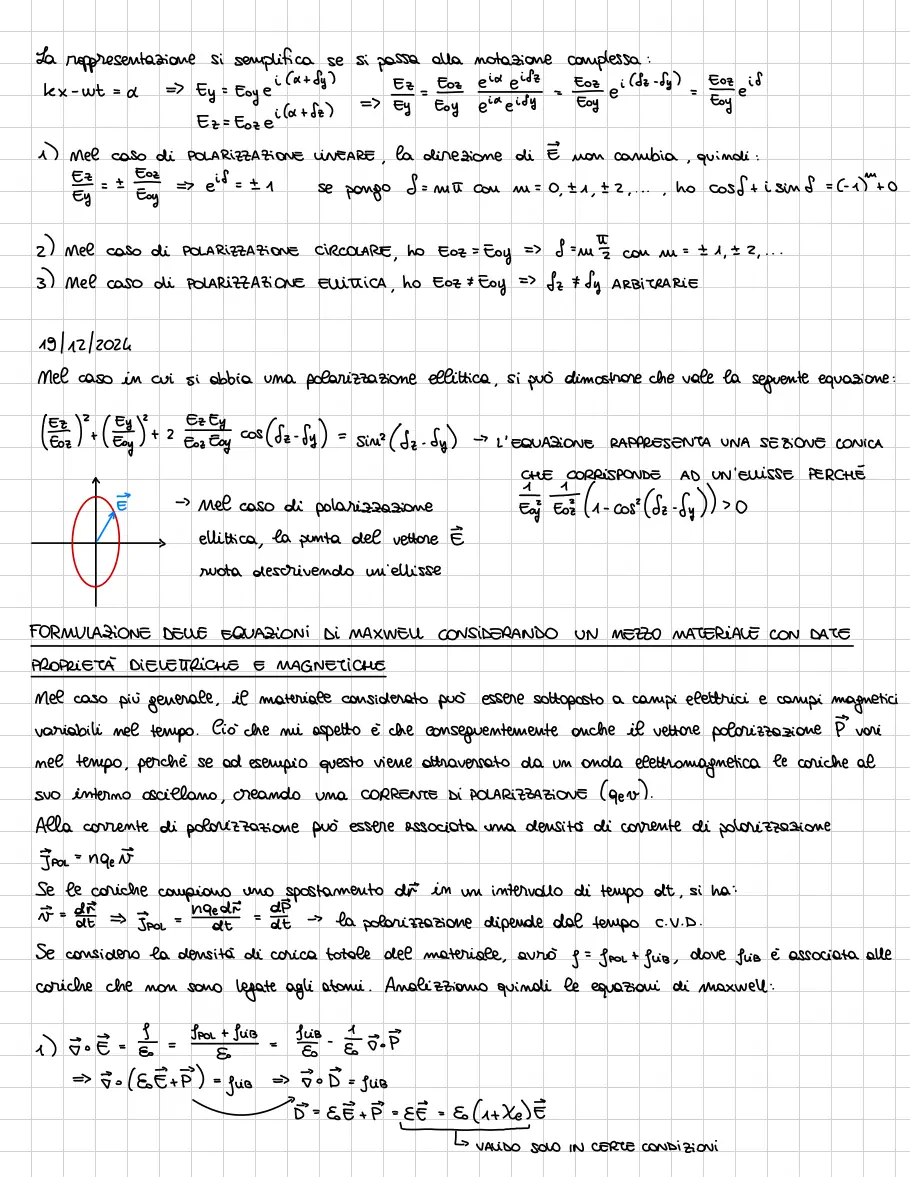 La rappresentazione si semplifica se si passa alla notazione complessa:
kx-wt = α => Ey = Eoy e^i(α+δy) => Ez/Ey = Eoz/Eoy e^iα e^iδz / e^iα e^iδy = Eoz/Eoy e^i(δz-δy) = Eoz/Eoy e^iδ
Ez = Eoz e^i(α+δz)
1) Nel caso di POLARIZZAZIONE LINEARE, la direzione di E⃗ non cambia, quindi:
Ez/Ey = ± Eoz/Eoy => e^iδ = ±1 se pongo δ = mπ con m = 0, ±1, ±2, ..., ho cosδ + i sinδ = (-1)^m + 0
2) Nel caso di POLARIZZAZIONE CIRCOLARE, ho Eoz = Eoy => δ = m π/2 con m = ±1, ±2, ...
3) Nel caso di POLARIZZAZIONE ELLITTICA, ho Eoz ≠ Eoy => δz ≠ δy ARBITRARIE
19/12/2024
Nel caso in cui si abbia una polarizzazione ellittica, si può dimostrare che vale la seguente equazione:
(Ez/Eoz)² + (Ey/Eoy)² + 2 EzEy/EozEoy cos(δz-δy) = sin²(δz-δy) → L'EQUAZIONE RAPPRESENTA UNA SEZIONE CONICA
CHE CORRISPONDE AD UN'ELLISSE PERCHÉ
1/Eoy² 1/Eoz² (1-cos²(δz-δy)) > 0
E⃗
→ Nel caso di polarizzazione
ellittica, la punta del vettore E⃗
ruota descrivendo un'ellisse
FORMULAZIONE DELLE EQUAZIONI DI MAXWELL CONSIDERANDO UN MEZZO MATERIALE CON DATE
PROPRIETÀ DIELETTRICHE E MAGNETICHE
Nel caso più generale, il materiale considerato può essere sottoposto a campi elettrici e campi magnetici
variabili nel tempo. Ciò che mi aspetto è che conseguentemente anche il vettore polarizzazione P⃗ vari
nel tempo, perché se ad esempio questo viene attraversato da un onda elettromagnetica le cariche al
suo interno oscillano, creando una CORRENTE DI POLARIZZAZIONE (qev).
Alla corrente di polarizzazione può essere associata una densità di corrente di polarizzazione
J⃗POL = nqe v⃗
Se le cariche compiono uno spostamento dr⃗ in un intervallo di tempo dt, si ha:
v⃗ = dr⃗/dt => J⃗POL = nqe dr⃗/dt = dP⃗/dt → la polarizzazione dipende dal tempo C.V.D.
Se considero la densità di carica totale del materiale, avrò ρ = ρPOL + ρLIB, dove ρLIB è associata alle
cariche che non sono legate agli atomi. Analizziamo quindi le equazioni di maxwell:
1) ∇⃗∘E⃗ = ρ/ε₀ = ρPOL + ρLIB/ε₀ = ρLIB/ε₀ - 1/ε₀ ∇⃗∘P⃗
=> ∇⃗∘(ε₀E⃗+P⃗) = ρLIB => ∇⃗∘D⃗ = ρLIB
D⃗ = ε₀E⃗+P⃗ = εE⃗ = ε₀(1+χe)E⃗
↳ VALIDO SOLO IN CERTE CONDIZIONI